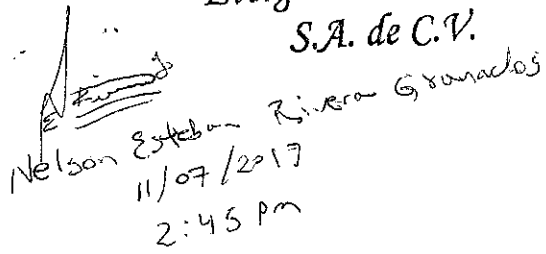 S.A. de C.V.
Nelson Esteban Rivera Granados
11/07/2017
2:45 pm